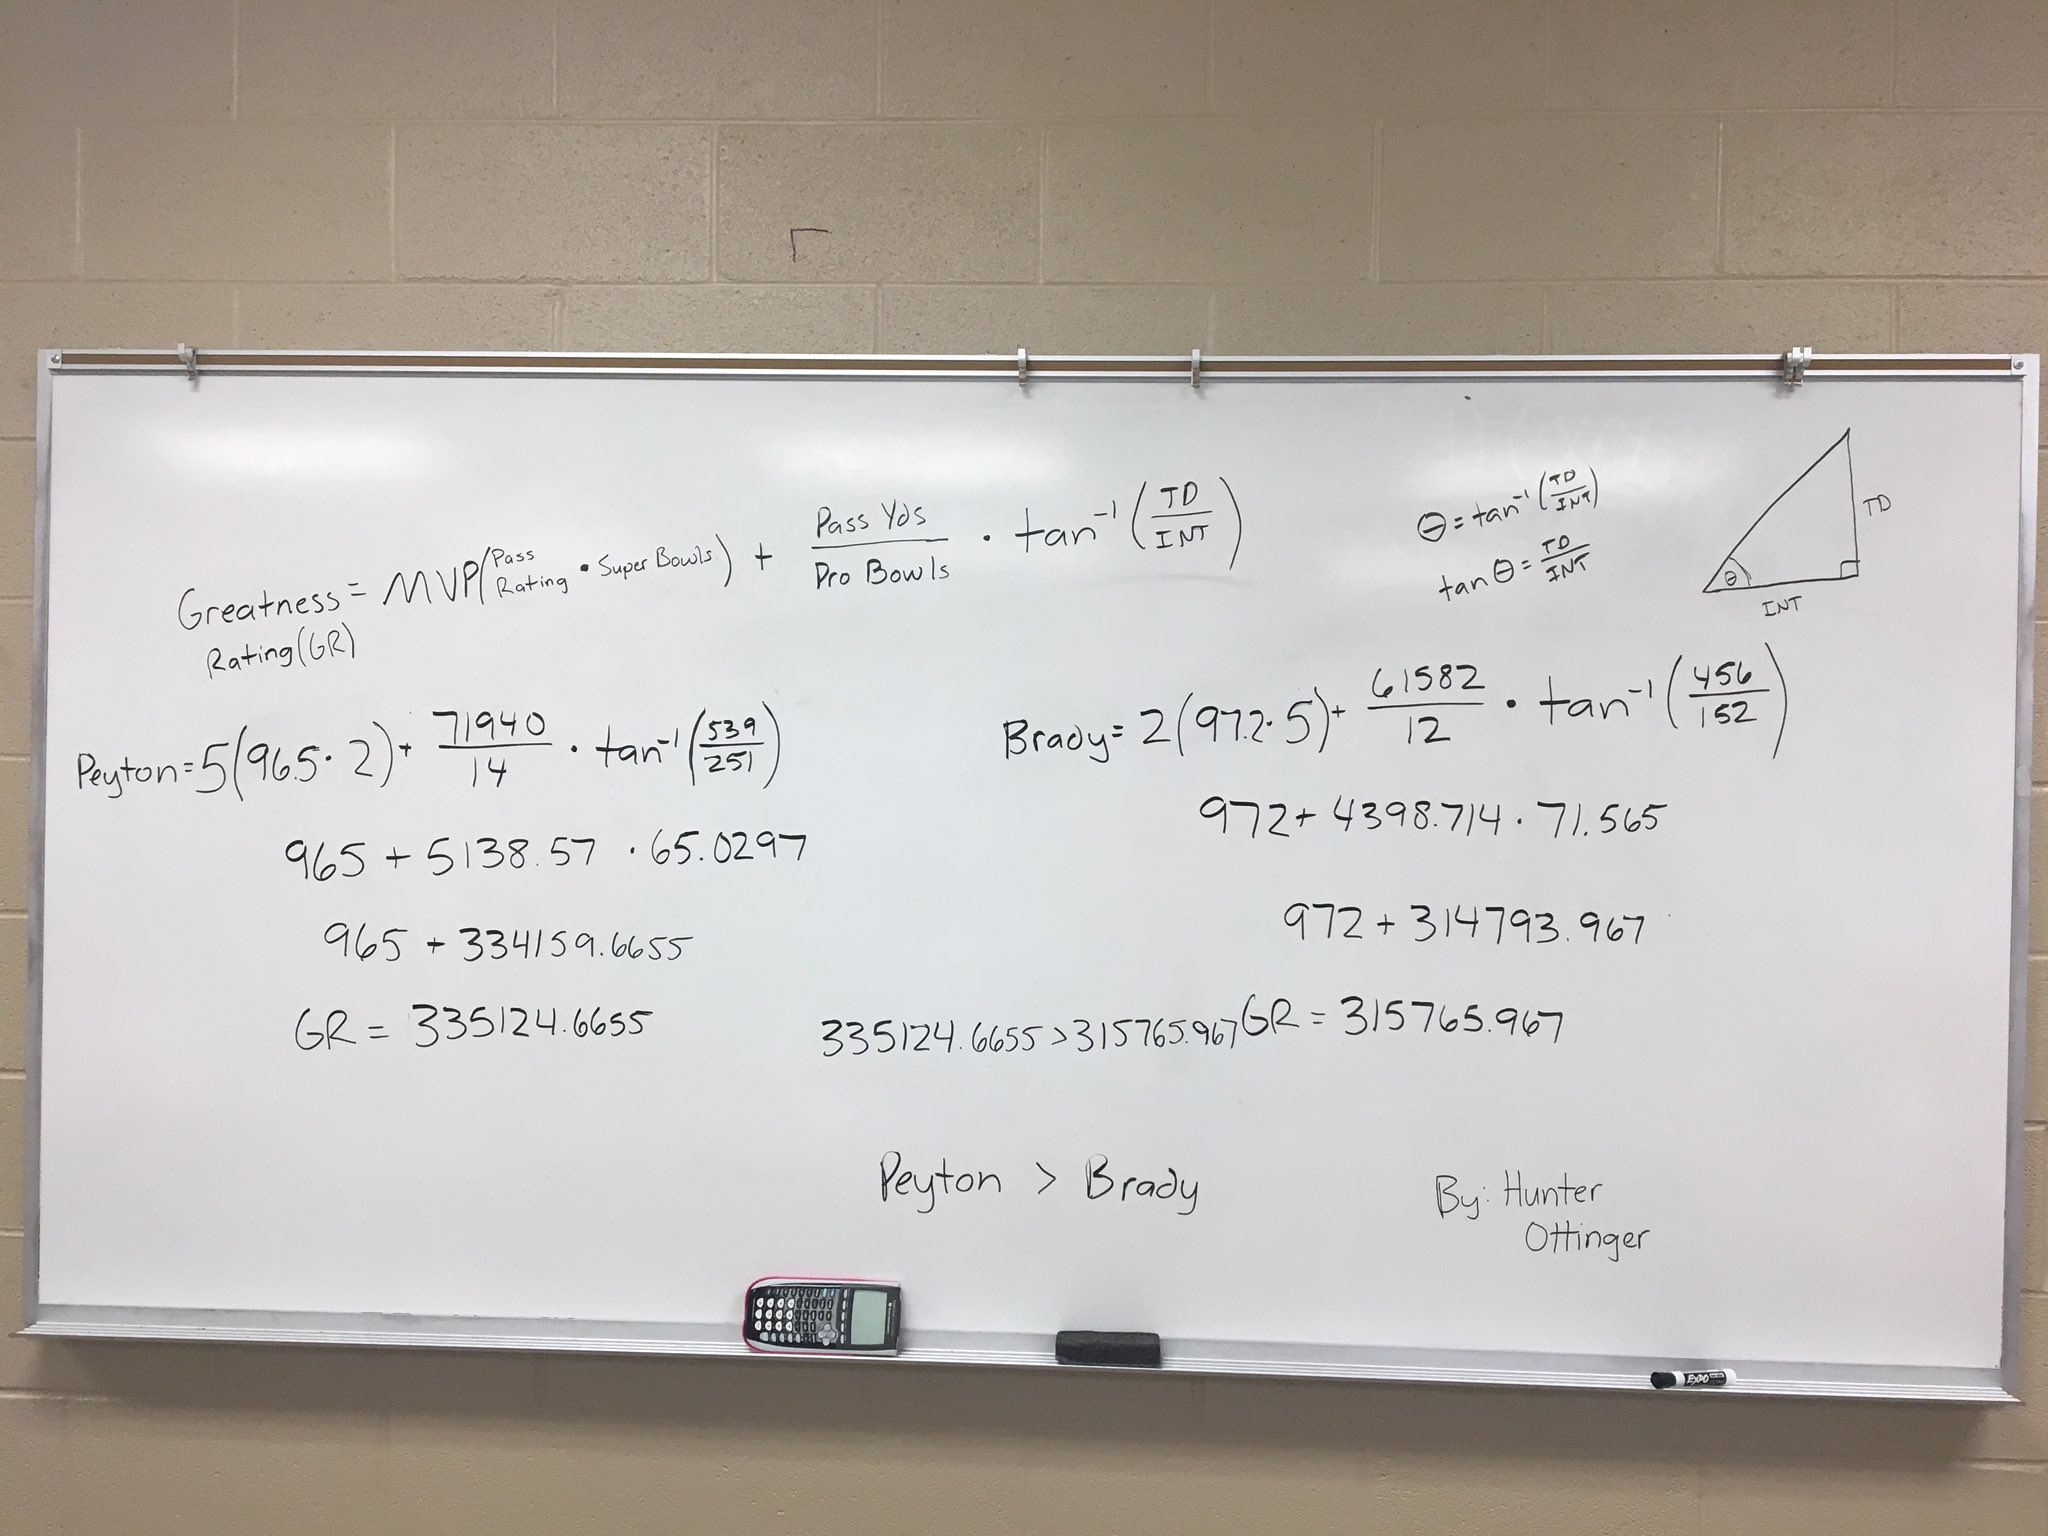 Greatness = MVP(Pass Rating • Super Bowls) + Pass Yds / Pro Bowls • tan⁻¹(TD / INT)
Rating (GR)
θ = tan⁻¹(TD / INT)
tan θ = TD / INT
θ
TD
INT
Peyton = 5(96.5 • 2) + 71940 / 14 • tan⁻¹(539 / 251)
965 + 5138.57 • 65.0297
965 + 334159.6655
GR = 335124.6655
Brady = 2(97.2 • 5) + 61582 / 12 • tan⁻¹(456 / 152)
972 + 4398.714 • 71.565
972 + 314793.967
GR = 315765.967
335124.6655 > 315765.967
Peyton > Brady
By: Hunter
Ottinger
EXPO